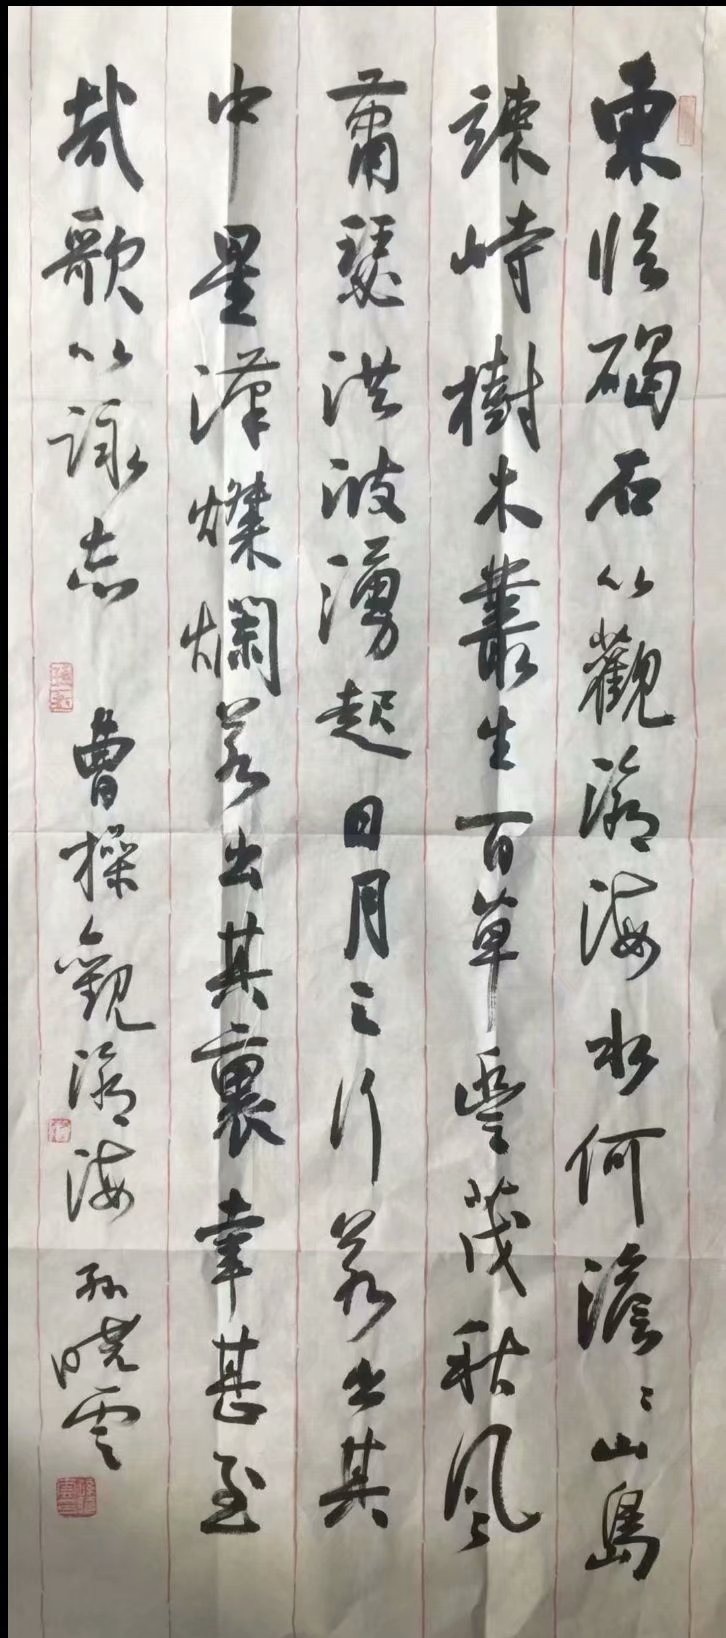 東臨碣石以觀滄海水何澹々山島
竦峙樹木叢生百草豐茂秋風
蕭瑟洪波湧起日月之行若出其
中星漢燦爛若出其裏幸甚至
哉歌以詠志
曹操觀滄海 孙曉雲